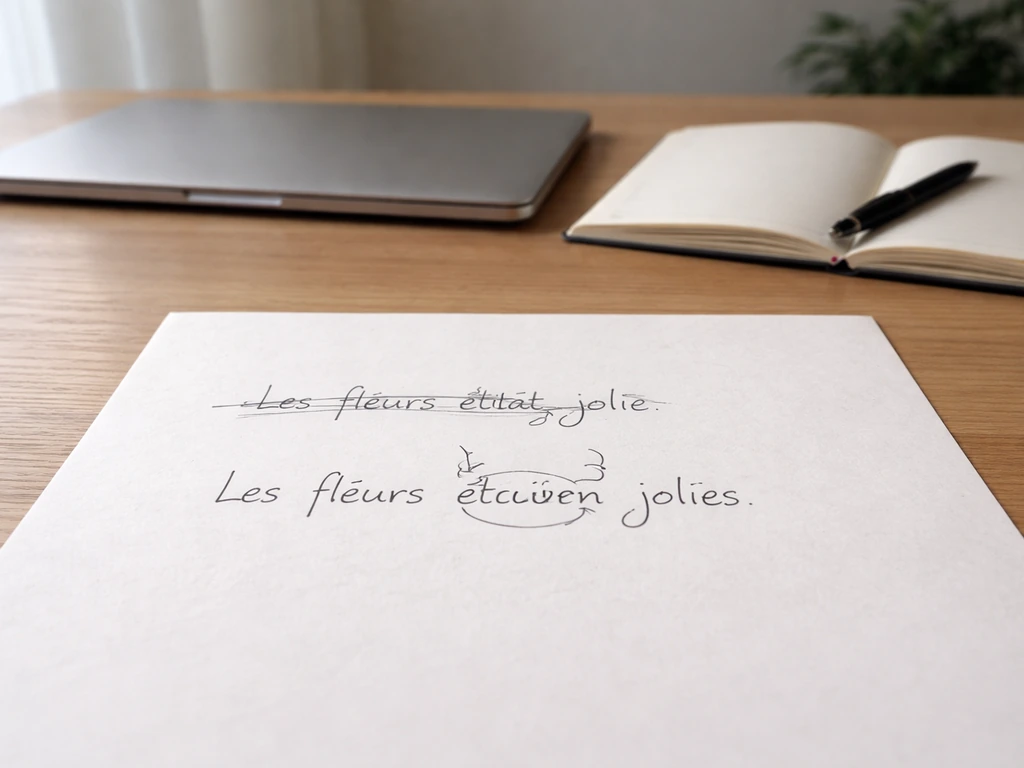 Les fléurs étitát jolie.
Les fléurs jolies.